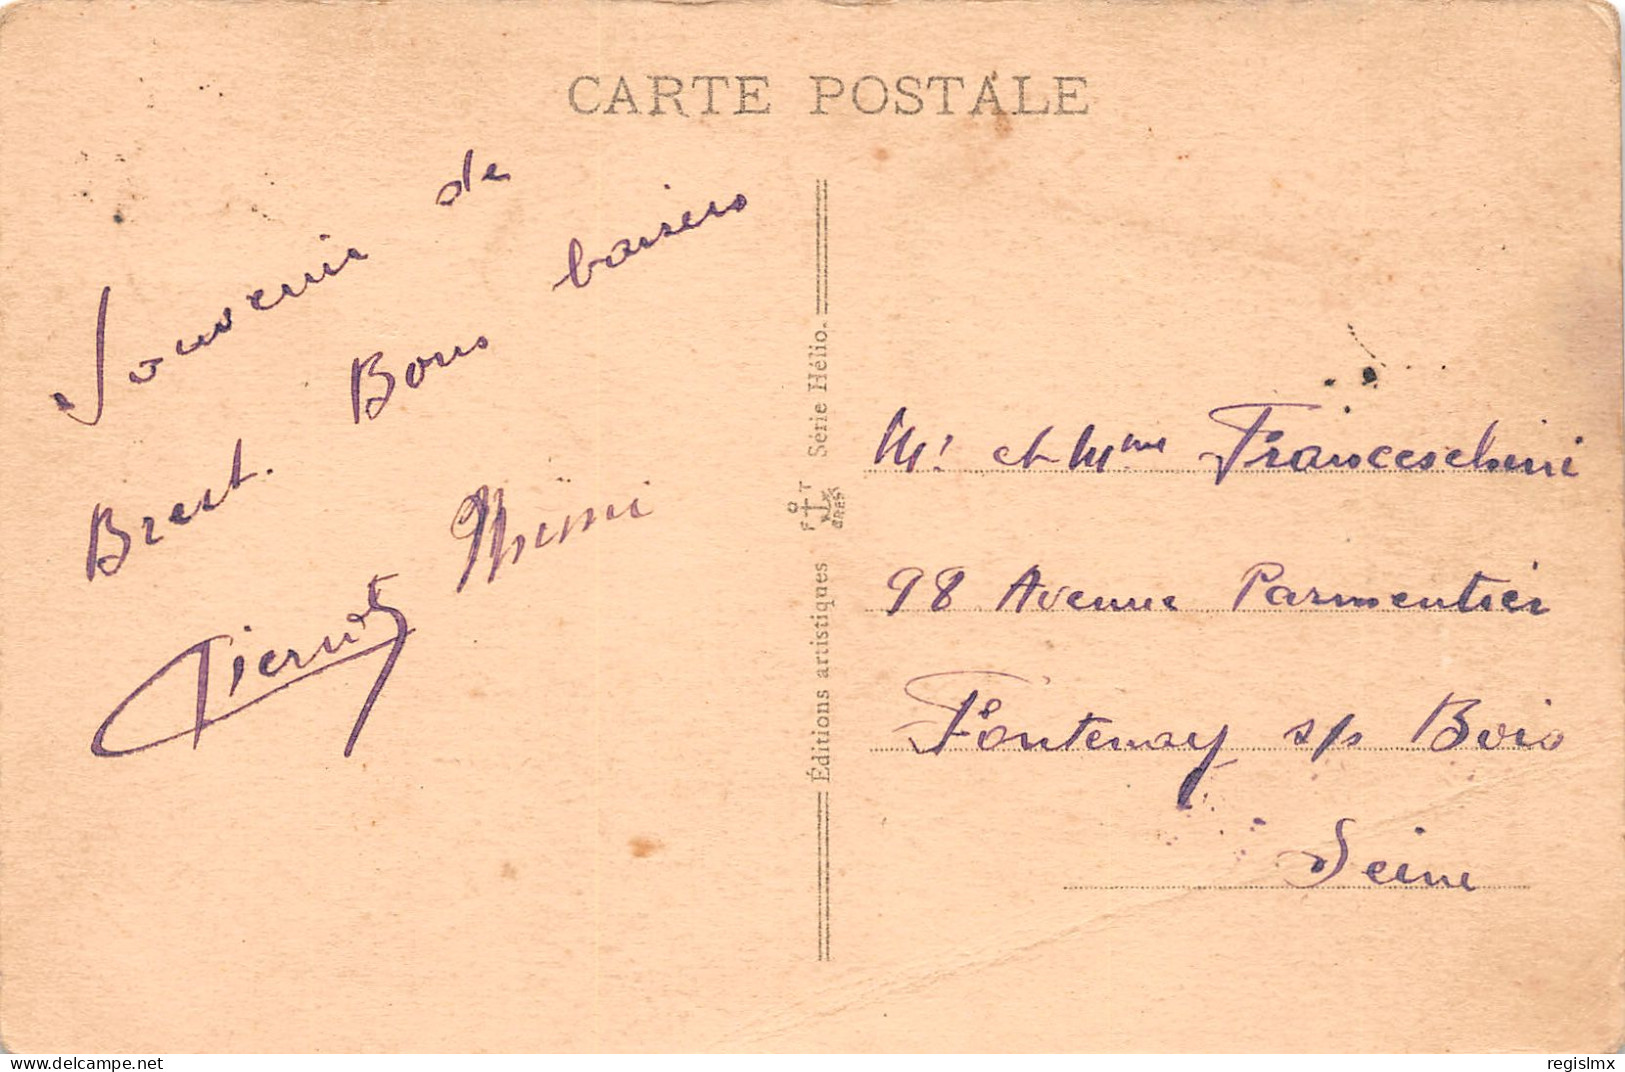 CARTE POSTALE
Souvenir de
Brest. Bons baisers
Pierrot Mimi
Éditions artistiques
FOT
Série Hélio.
Mr et Mme Franceschini
98 Avenue Parmentier
Fontenay s/s Bois
Seine
delcampe.net
regislmx